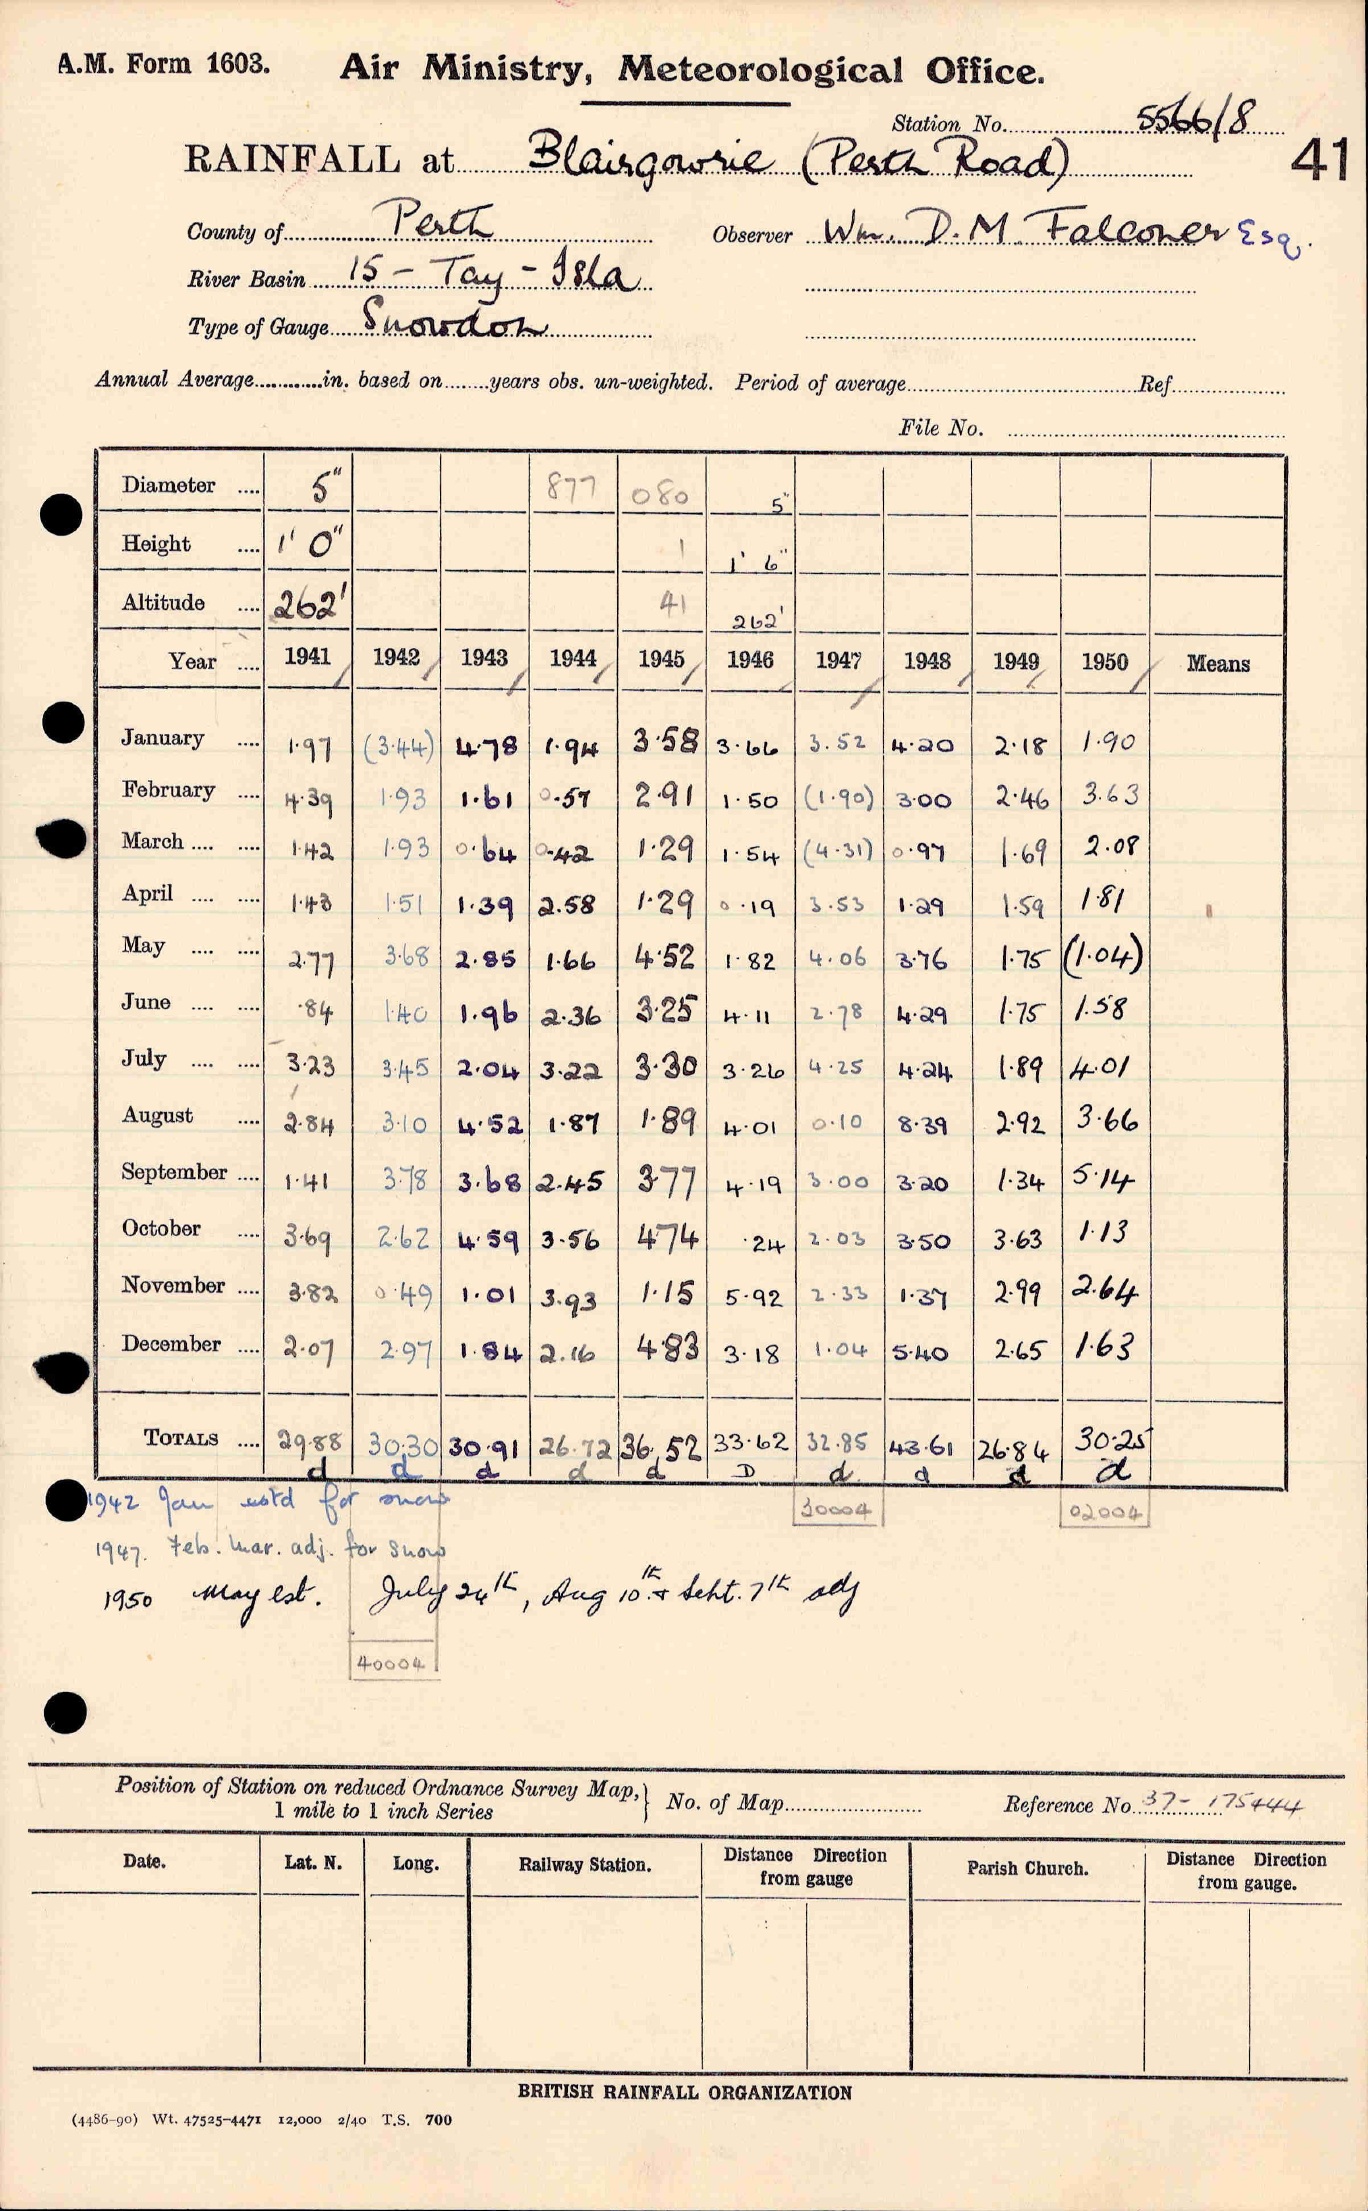 A.M. Form 1603. Air Ministry, Meteorological Office.
Station No. 5566/8
RAINFALL at Blairgowrie (Perth Road) 41
County of Perth Observer Wm. D. M. Falconer Esq.
River Basin 15 - Tay - Isla
Type of Gauge Snowdon
Annual Average in. based on years obs. un-weighted. Period of average Ref
File No.
Diameter 5" 877 080 5"
Height 1' 0" 1 1' 6"
Altitude 262' 41 262'
Year 1941 1942 1943 1944 1945 1946 1947 1948 1949 1950 Means
January 1.97 (3.44) 4.78 1.94 3.58 3.66 3.52 4.20 2.18 1.90
February 4.39 1.93 1.61 0.57 2.91 1.50 (1.90) 3.00 2.46 3.63
March 1.42 1.93 0.64 0.42 1.29 1.54 (4.31) 0.97 1.69 2.08
April 1.43 1.51 1.39 2.58 1.29 0.19 3.53 1.29 1.59 1.81
May 2.77 3.68 2.85 1.66 4.52 1.82 4.06 3.76 1.75 (1.04)
June .84 1.40 1.96 2.36 3.25 4.11 2.78 4.29 1.75 1.58
July 3.23 3.45 2.04 3.22 3.30 3.26 4.25 4.24 1.89 4.01
August 2.84 3.10 4.52 1.87 1.89 4.01 0.10 8.39 2.92 3.66
September 1.41 3.78 3.68 2.45 3.77 4.19 3.00 3.20 1.34 5.14
October 3.69 2.62 4.59 3.56 4.74 .24 2.03 3.50 3.63 1.13
November 3.82 0.49 1.01 3.93 1.15 5.92 2.33 1.37 2.99 2.64
December 2.07 2.97 1.84 2.16 4.83 3.18 1.04 5.40 2.65 1.63
TOTALS 29.88 30.30 30.91 26.72 36.52 33.62 32.85 43.61 26.84 30.25
d d d d d D d d d d
1942 Jan estd for snow 30004 02004
1947. Feb. Mar. adj. for snow
1950 May est. July 24th, Aug 10th & Sept. 7th adj
40004
Position of Station on reduced Ordnance Survey Map, 1 mile to 1 inch Series } No. of Map Reference No 37- 175444
Date. Lat. N. Long. Railway Station. Distance Direction from gauge Parish Church. Distance Direction from gauge.
BRITISH RAINFALL ORGANIZATION
(4486-90) Wt. 47525-4471 12,000 2/40 T.S. 700